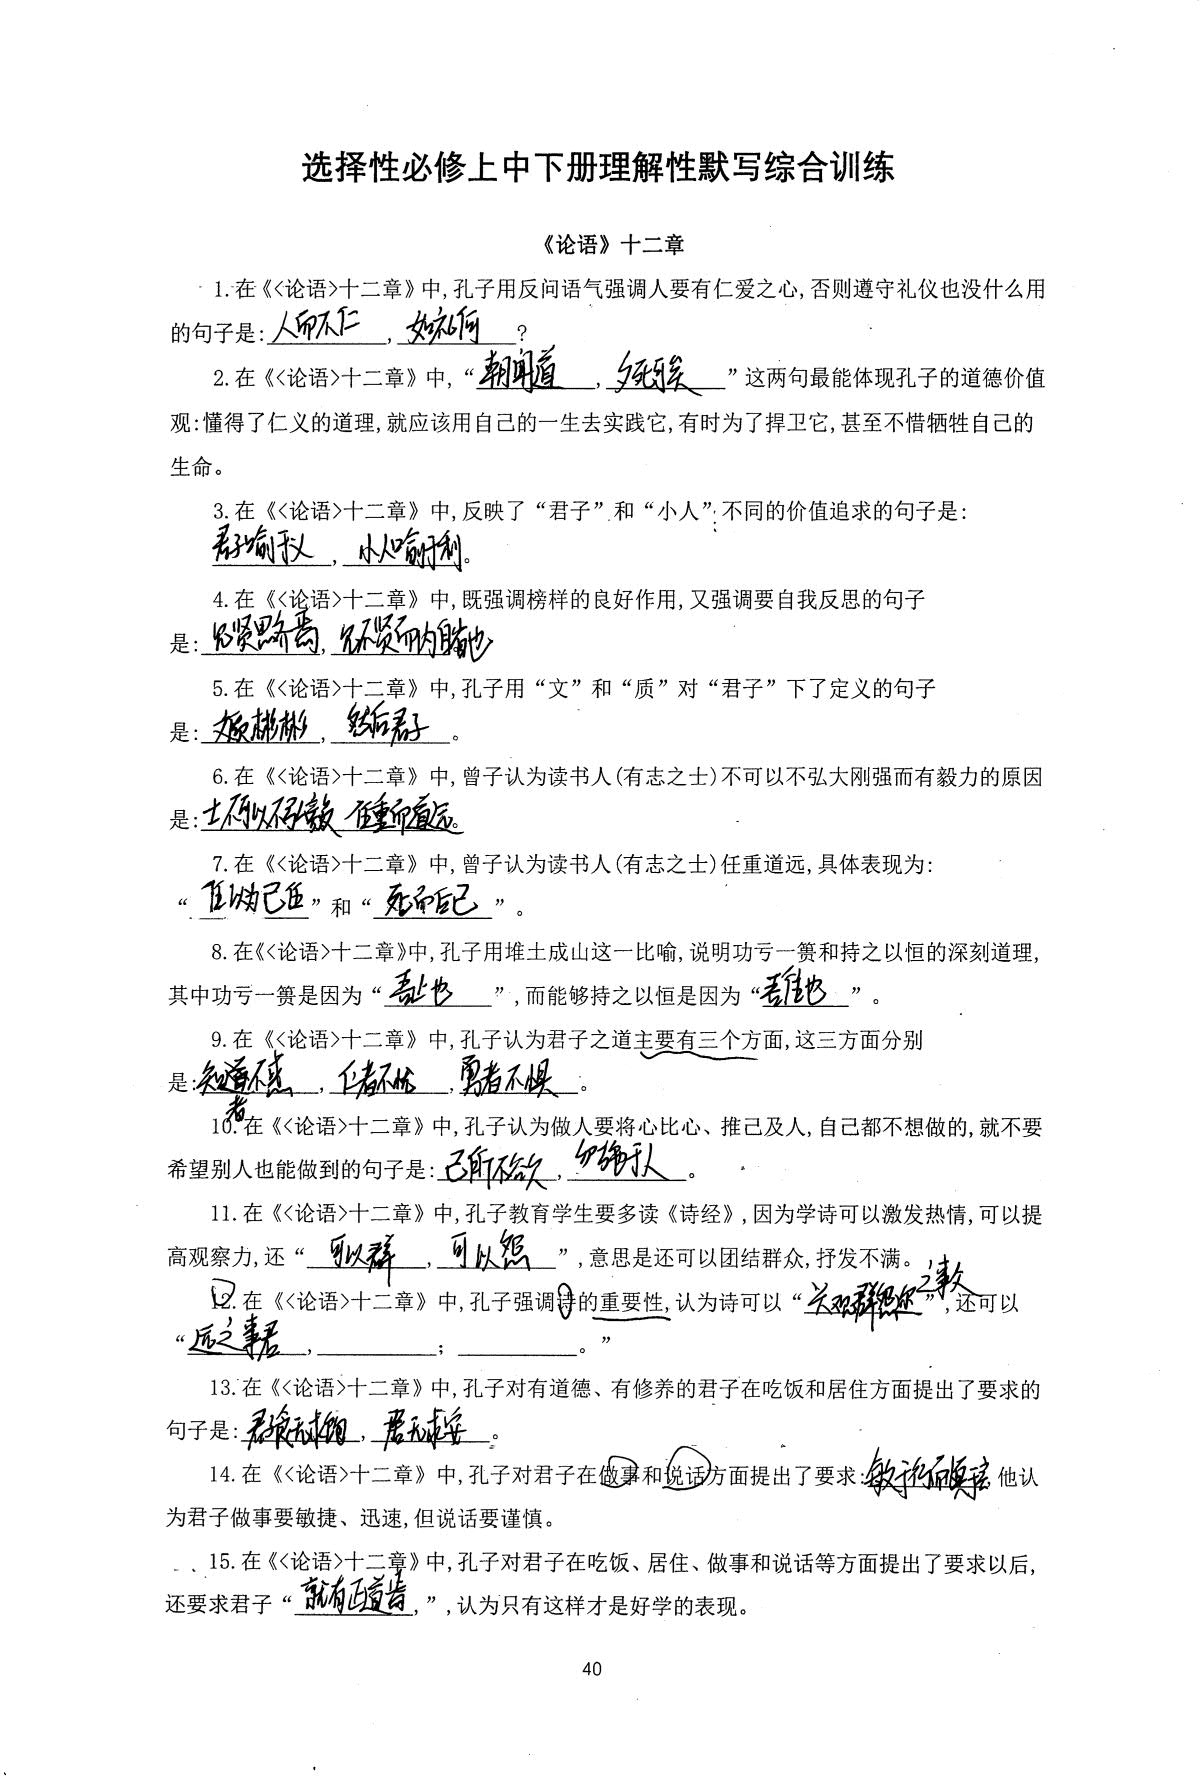 选择性必修上中下册理解性默写综合训练
《论语》十二章
1.在《<论语>十二章》中,孔子用反问语气强调人要有仁爱之心,否则遵守礼仪也没什么用
的句子是:人而不仁,如礼何?
2.在《<论语>十二章》中,“朝闻道,夕死矣”这两句最能体现孔子的道德价值
观:懂得了仁义的道理,就应该用自己的一生去实践它,有时为了捍卫它,甚至不惜牺牲自己的
生命。
3.在《<论语>十二章》中,反映了“君子”和“小人”不同的价值追求的句子是:
君子喻于义,小人喻于利。
4.在《<论语>十二章》中,既强调榜样的良好作用,又强调要自我反思的句子
是:见贤思齐焉,见不贤而内自省也
5.在《<论语>十二章》中,孔子用“文”和“质”对“君子”下了定义的句子
是:文质彬彬,然后君子。
6.在《<论语>十二章》中,曾子认为读书人(有志之士)不可以不弘大刚强而有毅力的原因
是:士不可以不弘毅 任重而道远。
7.在《<论语>十二章》中,曾子认为读书人(有志之士)任重道远,具体表现为:
“仁以为己任”和“死而后已”。
8.在《<论语>十二章》中,孔子用堆土成山这一比喻,说明功亏一篑和持之以恒的深刻道理,
其中功亏一篑是因为“吾止也”,而能够持之以恒是因为“吾往也”。
9.在《<论语>十二章》中,孔子认为君子之道主要有三个方面,这三方面分别
是:知者不惑,仁者不忧,勇者不惧。
10.在《<论语>十二章》中,孔子认为做人要将心比心、推己及人,自己都不想做的,就不要
希望别人也能做到的句子是:己所不欲,勿施于人。
11.在《<论语>十二章》中,孔子教育学生要多读《诗经》,因为学诗可以激发热情,可以提
高观察力,还“可以群,可以怨”,意思是还可以团结群众,抒发不满。
12.在《<论语>十二章》中,孔子强调诗的重要性,认为诗可以“兴观群怨迩之事父”,还可以
“远之事君,;。”
13.在《<论语>十二章》中,孔子对有道德、有修养的君子在吃饭和居住方面提出了要求的
句子是:君子食无求饱,居无求安。
14.在《<论语>十二章》中,孔子对君子在做事和说话方面提出了要求:敏于行而慎言他认
为君子做事要敏捷、迅速,但说话要谨慎。
15.在《<论语>十二章》中,孔子对君子在吃饭、居住、做事和说话等方面提出了要求以后,
还要求君子“就有正道焉,”,认为只有这样才是好学的表现。
40